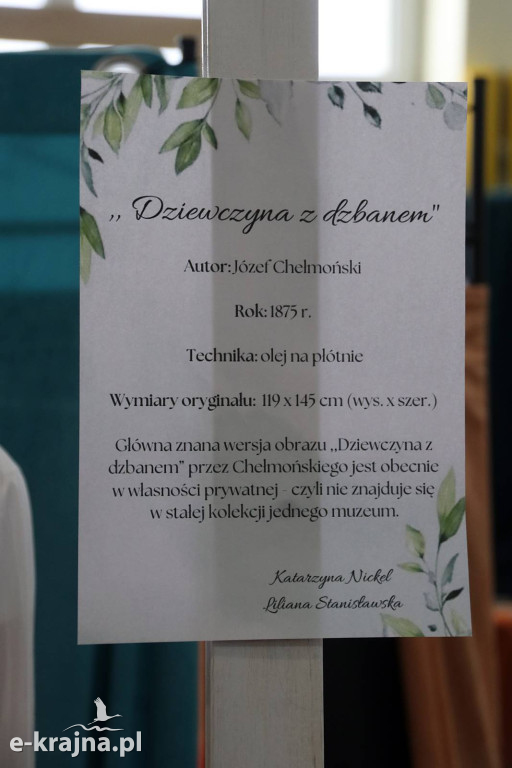 ,, Dziewczyna z dzbanem"
Autor: Józef Chełmoński
Rok: 1875 r.
Technika: olej na płótnie
Wymiary oryginału: 119 x 145 cm (wys. x szer.)
Główna znana wersja obrazu ,,Dziewczyna z
dzbanem” przez Chełmońskiego jest obecnie
w własności prywatnej – czyli nie znajduje się
w stałej kolekcji jednego muzeum.
Katarzyna Nickel
Liliana Stanisławska
e-krajna.pl